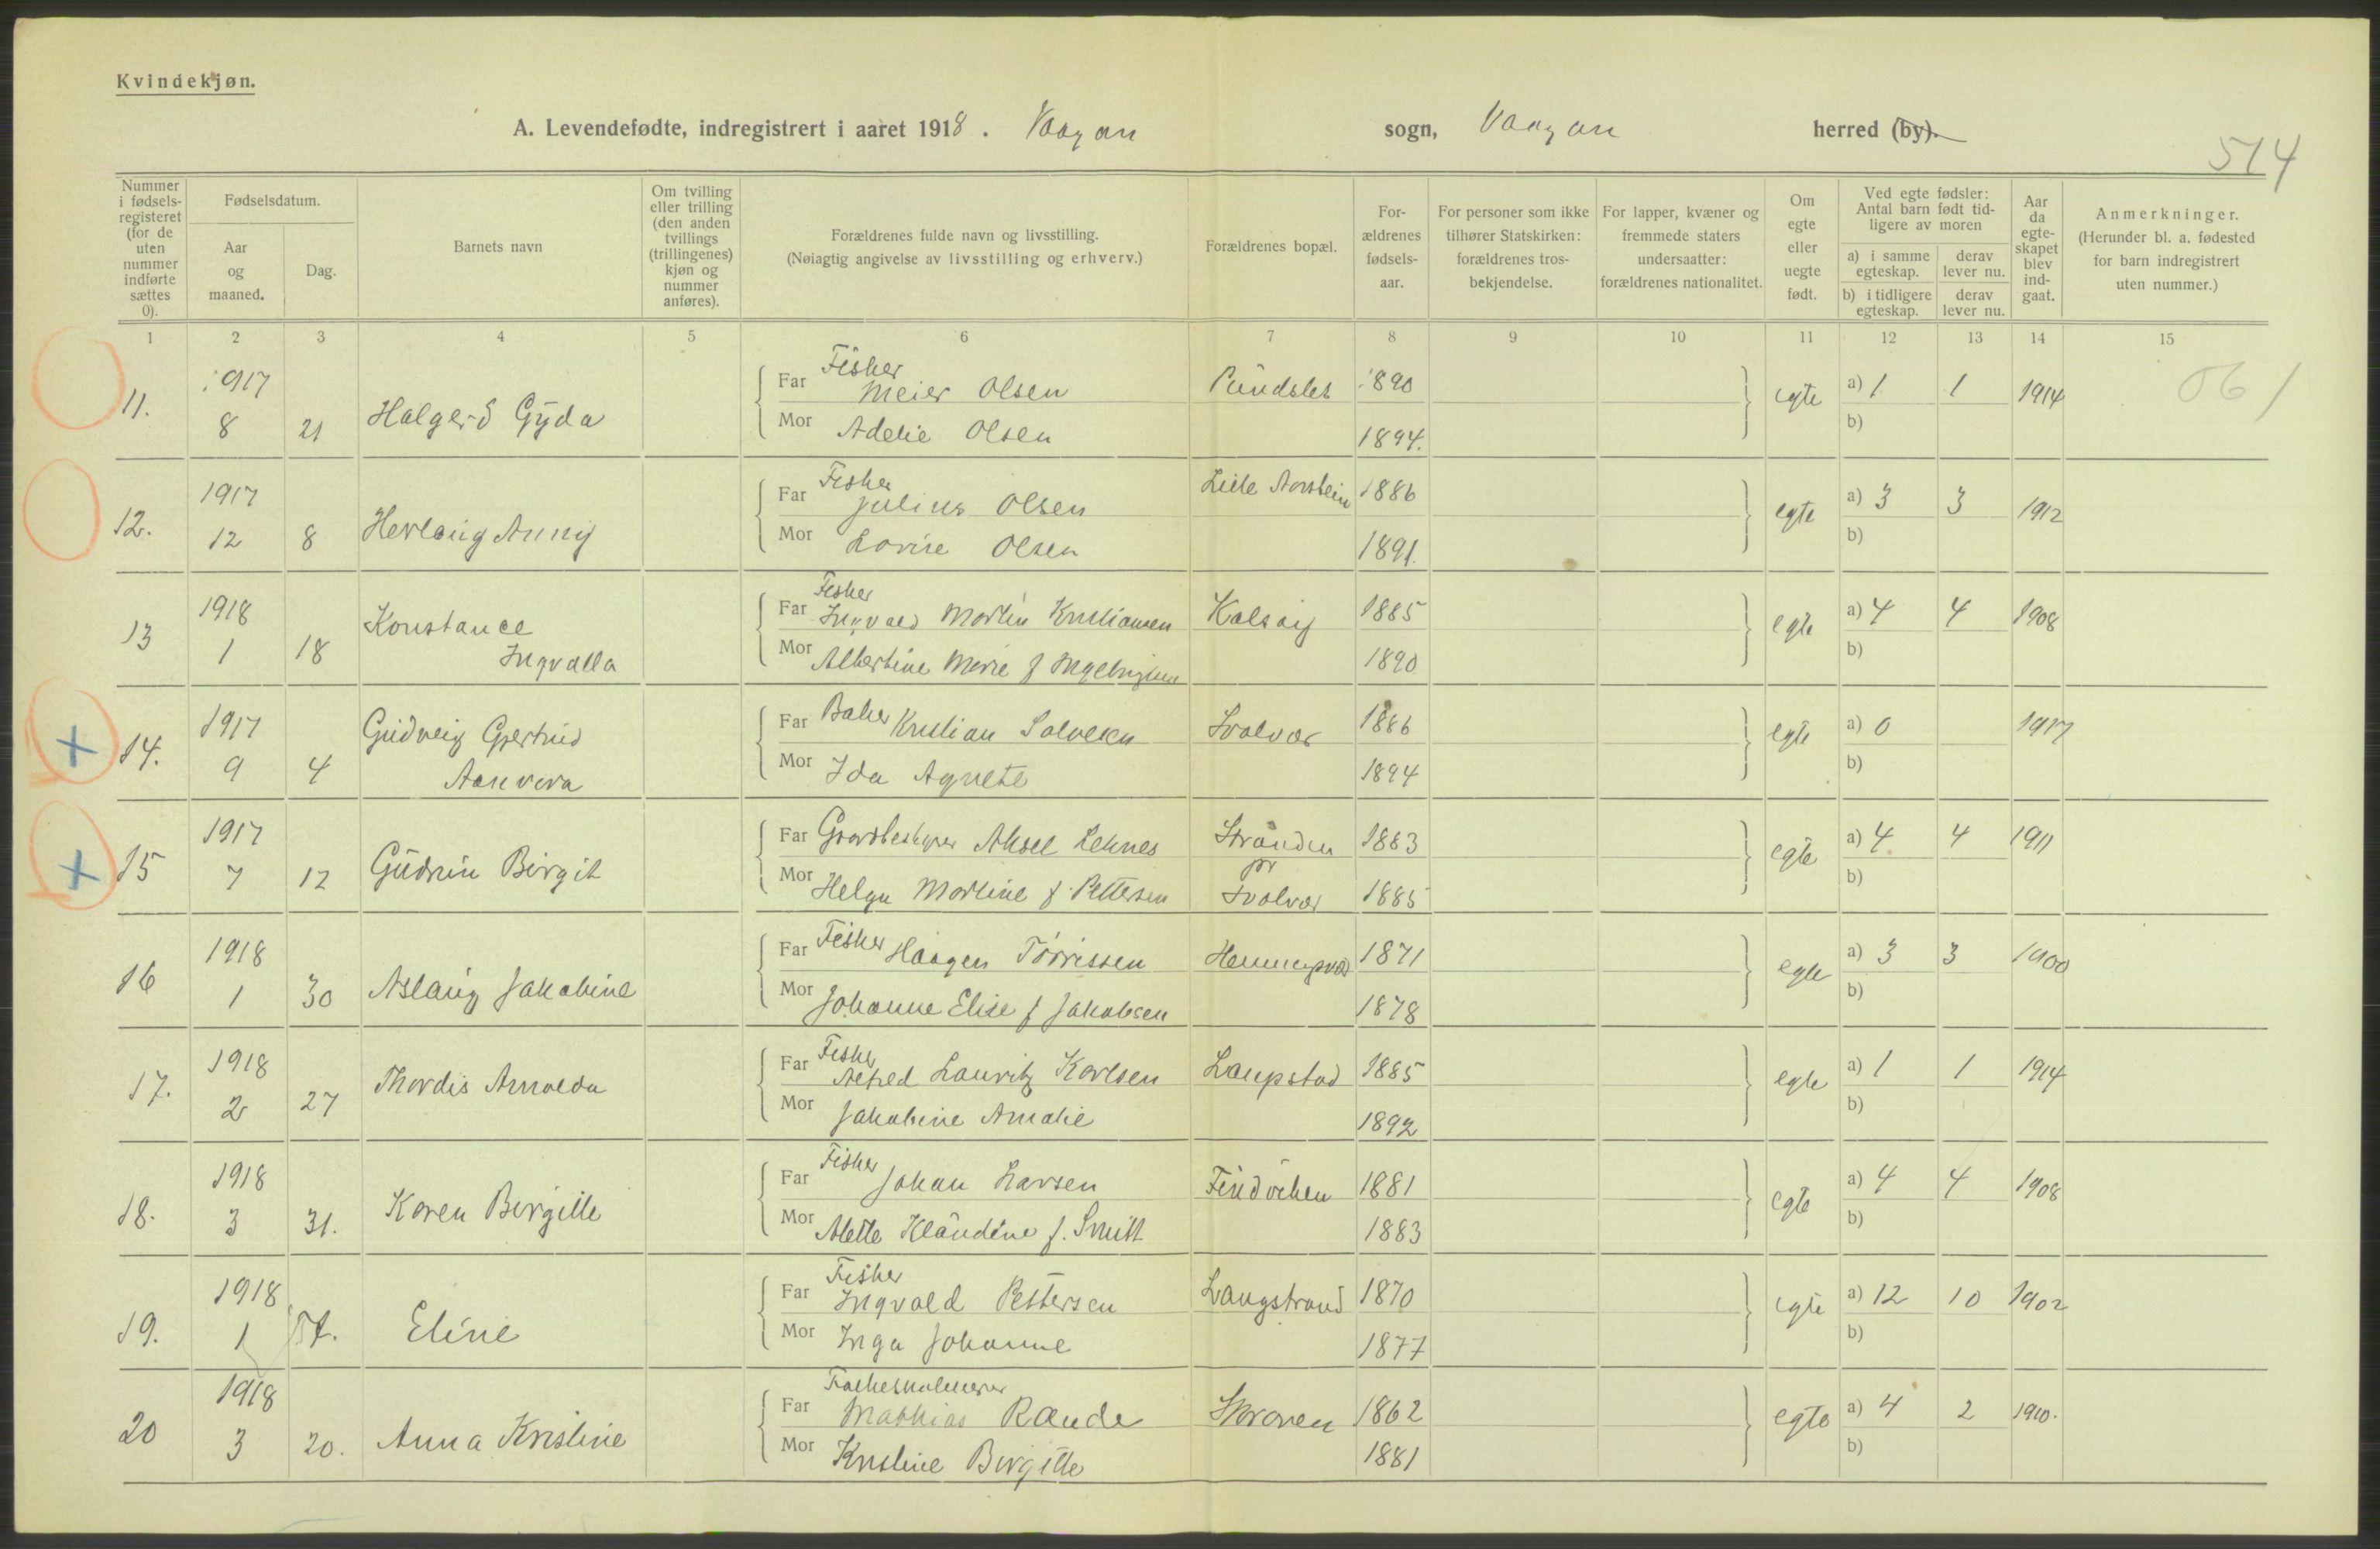 Kvindekjøn.
A. Levendefødte, indregistrert i aaret 1918. Vaagan sogn, Vaagan herred (by).
514
Nummer i fødsels-registeret (for de uten nummer indførte sættes 0).
Fødselsdatum.
Aar og maaned.
Dag.
Barnets navn
Om tvilling eller trilling (den anden tvillings (trillingenes) kjøn og nummer anføres).
Forældrenes fulde navn og livsstilling.
(Nøiagtig angivelse av livsstilling og erhverv.)
Forældrenes bopæl.
For-ældrenes fødsels-aar.
For personer som ikke tilhører Statskirken: forældrenes tros-bekjendelse.
For lapper, kvæner og fremmede staters undersaatter: forældrenes nationalitet.
Om egte eller uegte født.
Ved egte fødsler: Antal barn født tid-ligere av moren
a) i samme egteskap.
derav lever nu.
b) i tidligere egteskap.
derav lever nu.
Aar da egte-skapet blev ind-gaat.
Anmerkninger.
(Herunder bl. a. fødested for barn indregistrert uten nummer.)
1 2 3 4 5 6 7 8 9 10 11 12 13 14 15
1917 Fisker
11. Far Meier Olsen Pundslet 1890 egte a) 1 1 1914 061
8 21 Halgerd Gyda Mor Adelie Olsen 1894. b)
1917 Fisker
12. Far Julius Olsen Lille 1886 egte a) 3 3 1912
12 8 Herlaug Anny Mor Lovise Olsen 1891. b)
1918 Fisker
13 Konstance Far Ingvald Martin Kristiansen Kalsøy 1885 egte a) 4 4 1908
1 18 Ingvalla Mor Albertine Marie f Ingebrigtsen 1890 b)
1917 Gudveig Gjertrud Far Baker Kristian Salvesen Svolvær 1886 egte a) 0 1917
14. 9 4 Mor Ida Agnete 1894 b)
1917 Far Gaardbestyrer Aksel Leknes Stranden 1883 egte a) 4 4 1911
15 7 12 Gudrun Birgit pr
Mor Helga Martine f. Pettersen Svolvær 1885 b)
1918 Far Fisker Haagen Tørrissen Henningsvær 1871 egte a) 3 3 1900
16 1 30 Aslaug Jakobine Mor Johanne Elise f Jakobsen 1878 b)
1918 Fisker
17. Thordis Arnolda Far Alfred Lauritz Karlsen Laupstad 1885 egte a) 1 1 1914
2 27 Mor Jakobine Amalie 1892 b)
1918 Fisker
18. Karen Bergitte Far Johan Larsen Findviken 1881 egte a) 4 4 1908
3 31. Mor Alette Klaudine f. Smitt 1883 b)
1918 Fisker
19. Eline Far Ingvald Pettersen Langstrand 1870 egte a) 12 10 1902
1 Mor Inga Johanne 1877 b)
1918
20 Anna Kristine Far Mathias Rande Skroven 1862 egte a) 4 2 1910.
3 20. Mor Kristine Birgitte 1881 b)